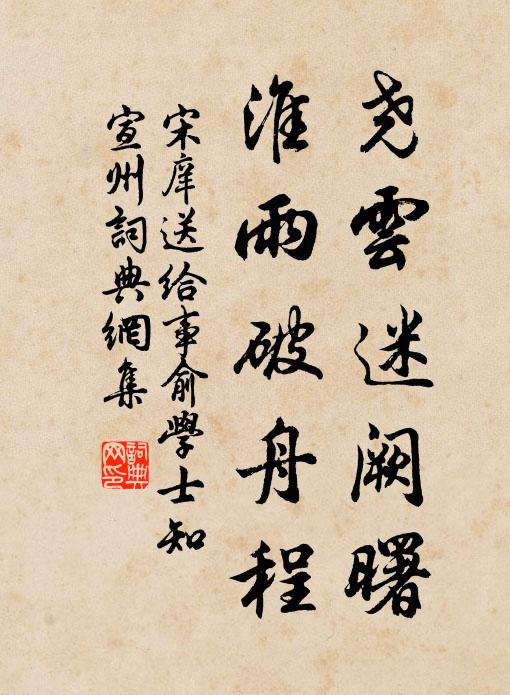 尧雲迷阙曙
淮雨破舟程
宋庠送给事俞學士知
宣州詞典網集
詞典
网印